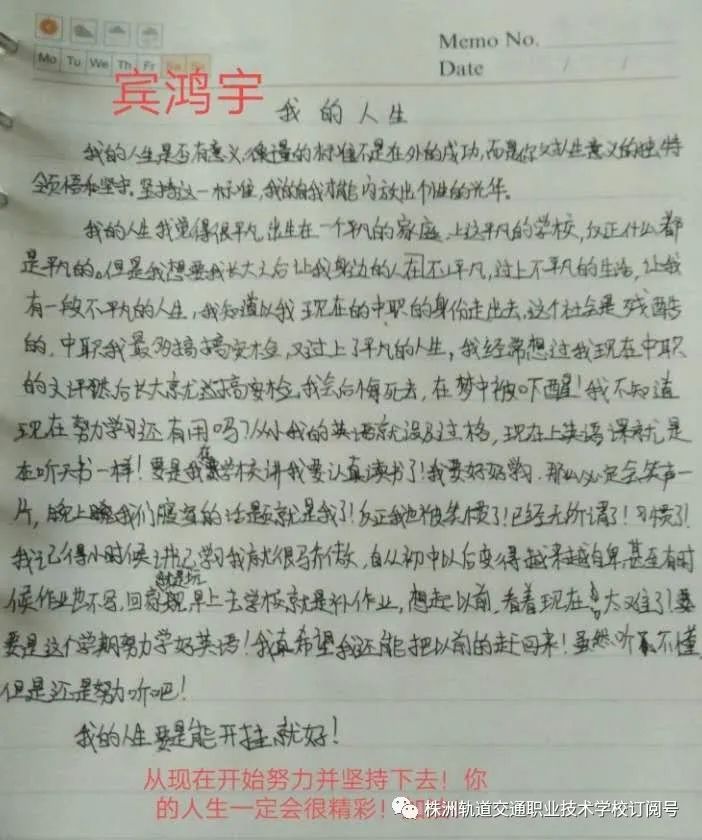 Memo No.
Mo Tu We Th Fr Sa Su
Date / /
宾鸿宇
我的人生
我的人生是否有意义,衡量的标准不是在外的成功,而是你对人生意义的独特
领悟和坚守,坚持这一标准,我的自我才能内放出个性的光华。
我的人生我觉得很平凡,出生在一个平凡的家庭,上这平凡的学校,反正什么都
是平凡的。但是我想要我长大之后让我身边的人在不平凡,过上不平凡的生活,让我
有一段不平凡的人生,我知道以我现在的中职的身份走出去,这个社会是残酷
的,中职我最多搞搞安检,又过上了平凡的人生,我经常想过我现在中职
的文评然后长大就去搞安检,我会后悔死去,在梦中被吓醒!我不知道
现在努力学习还有用吗?从小我的英语就没及过格,现在上英语课就是
在听天书一样!要是我在学校讲我要认真读书了!我要好好学习,那么必定会笑声一
片,晚上我们寝室的话题就是我了!反正我也被笑惯了!已经无所谓了!习惯了!
我记得小时候讲起学习我就很骄傲,自从初中以后变得越来越自卑,甚至有时
候作业也不写,回家就是玩,早上去学校就是补作业,想起以前,看着现在,太难了!要
要是这个学期努力学好英语!我真希望我还能把以前的赶回来!虽然听不懂,
但是还是努力听吧!
我的人生要是能开挂就好!
从现在开始努力并坚持下去!你
的人生一定会很精彩!
株洲轨道交通职业技术学校订阅号